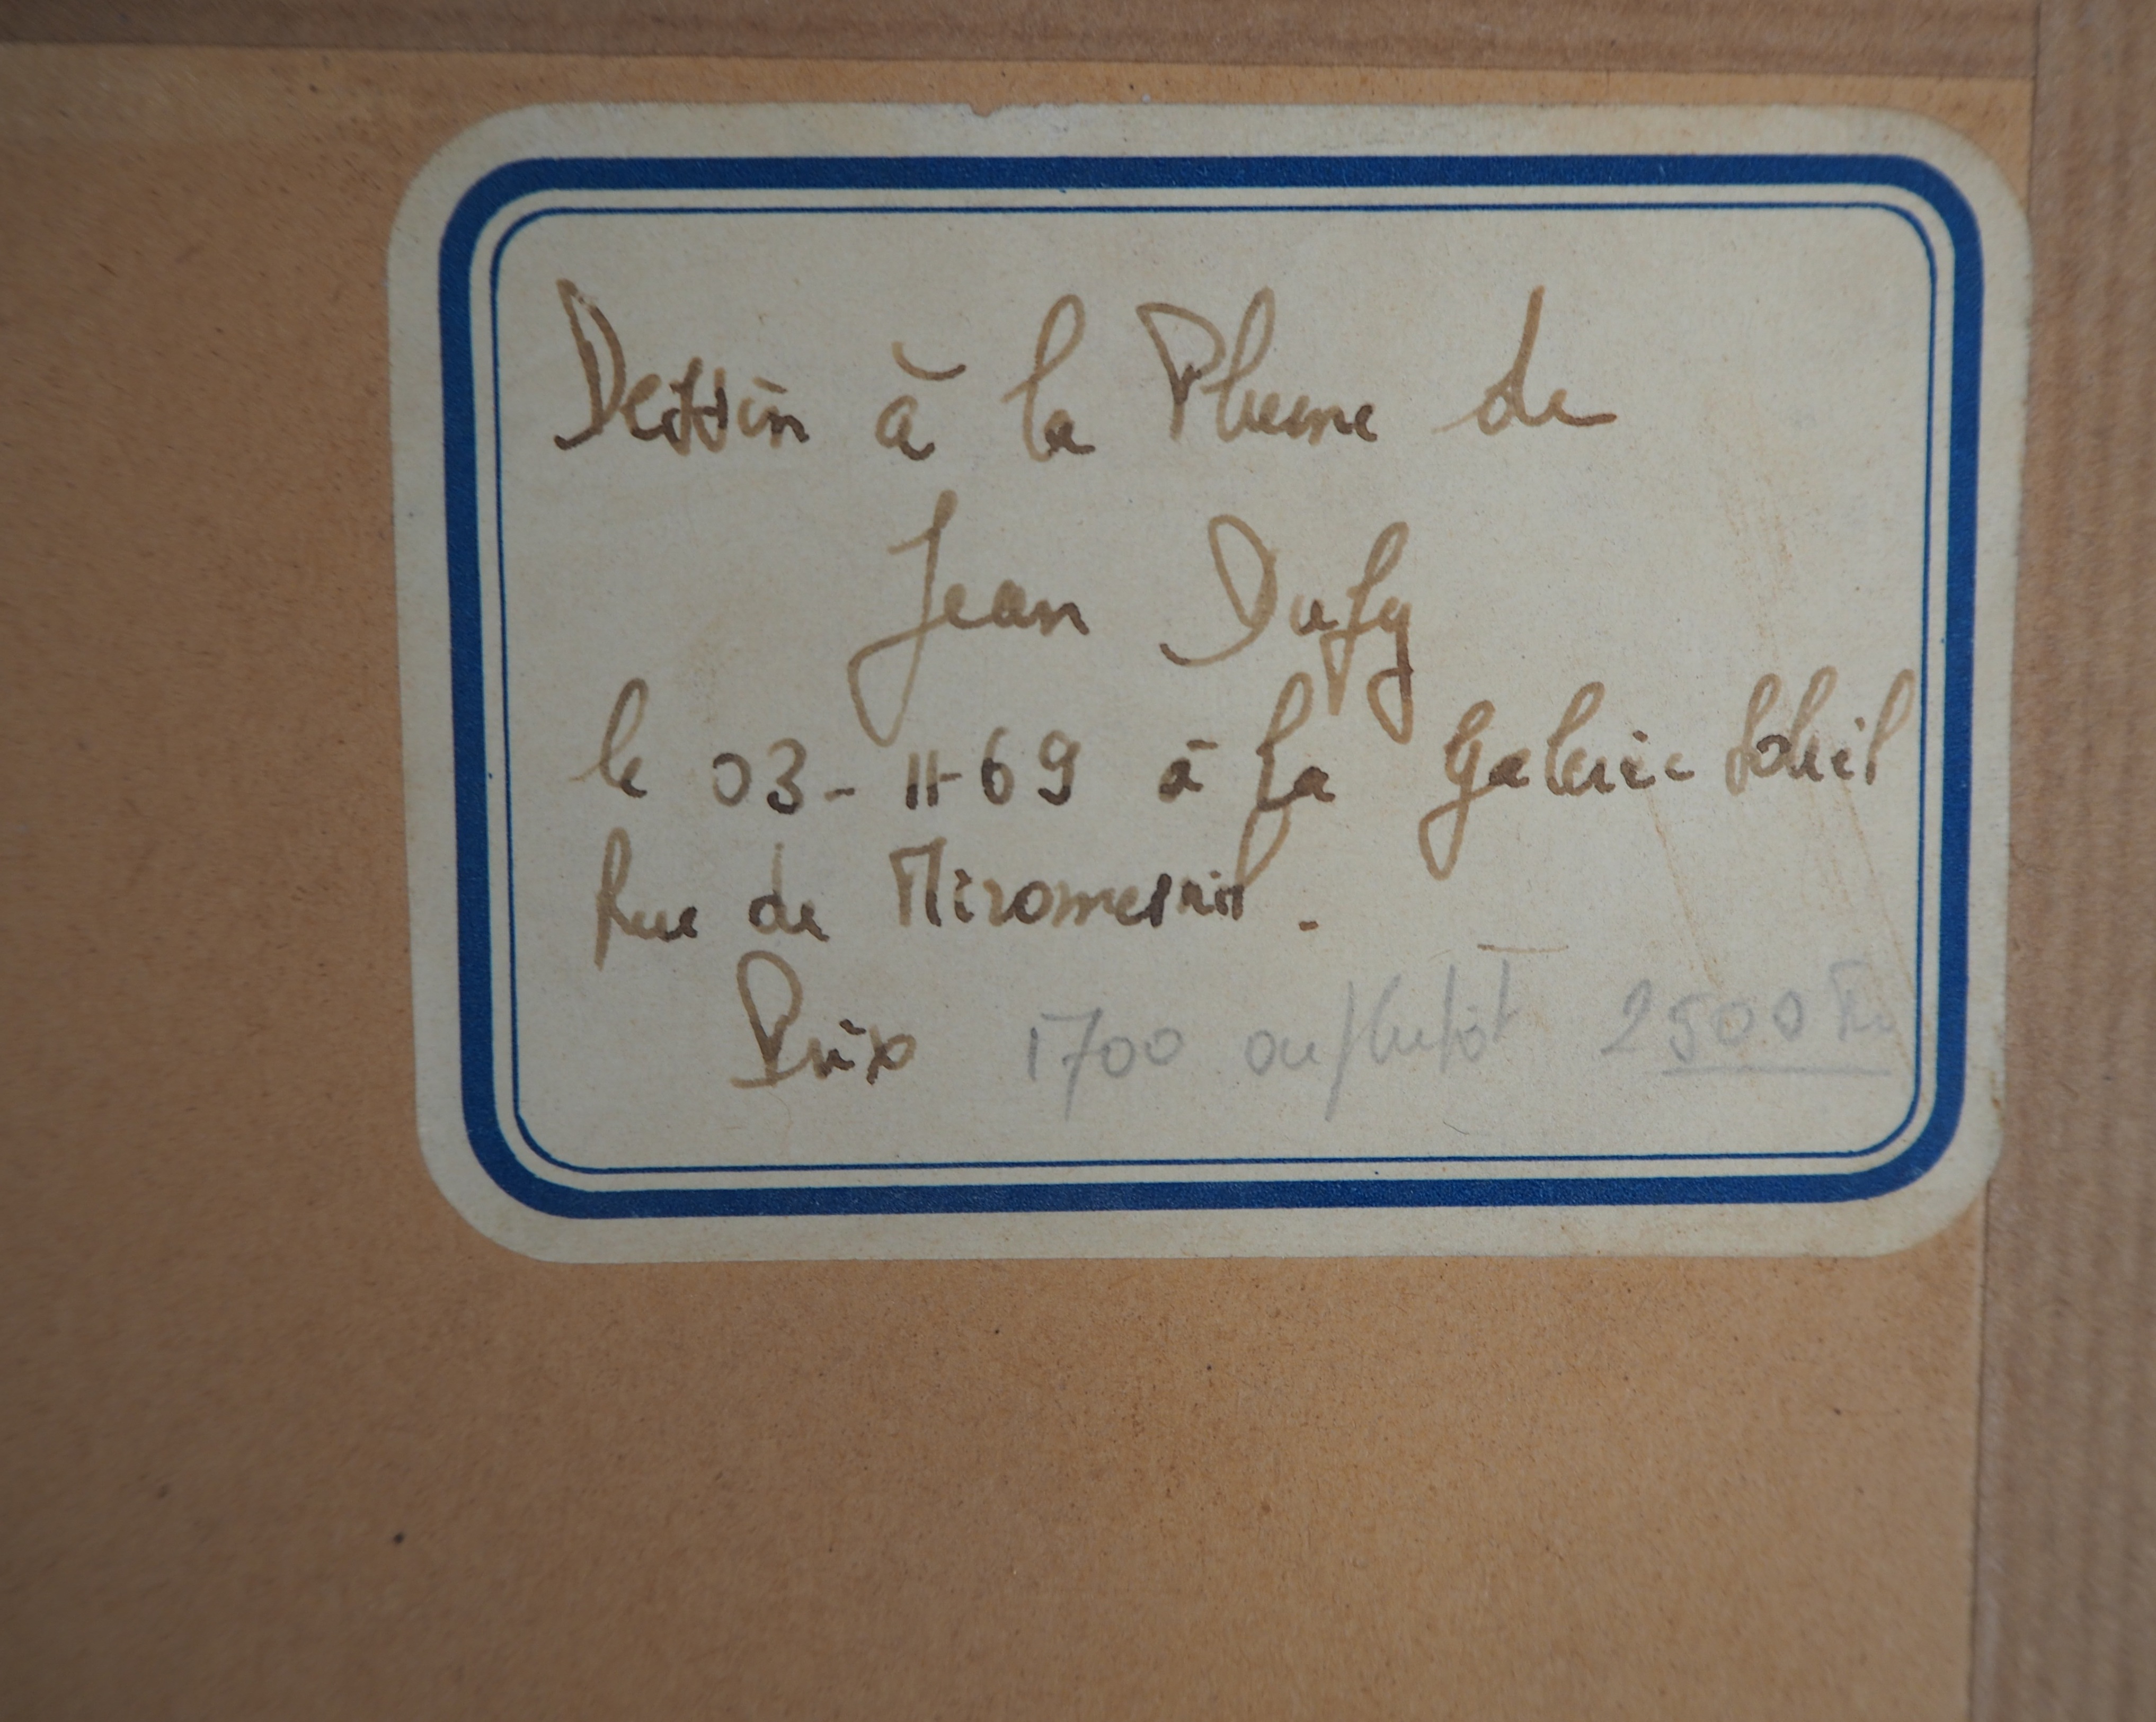 Dessin à la Plume de
Jean Dufy
le 03-11-69 à la Galerie Soleil
Rue de Miromesnil.
Prix 1700 ou plutôt 2500 Frs